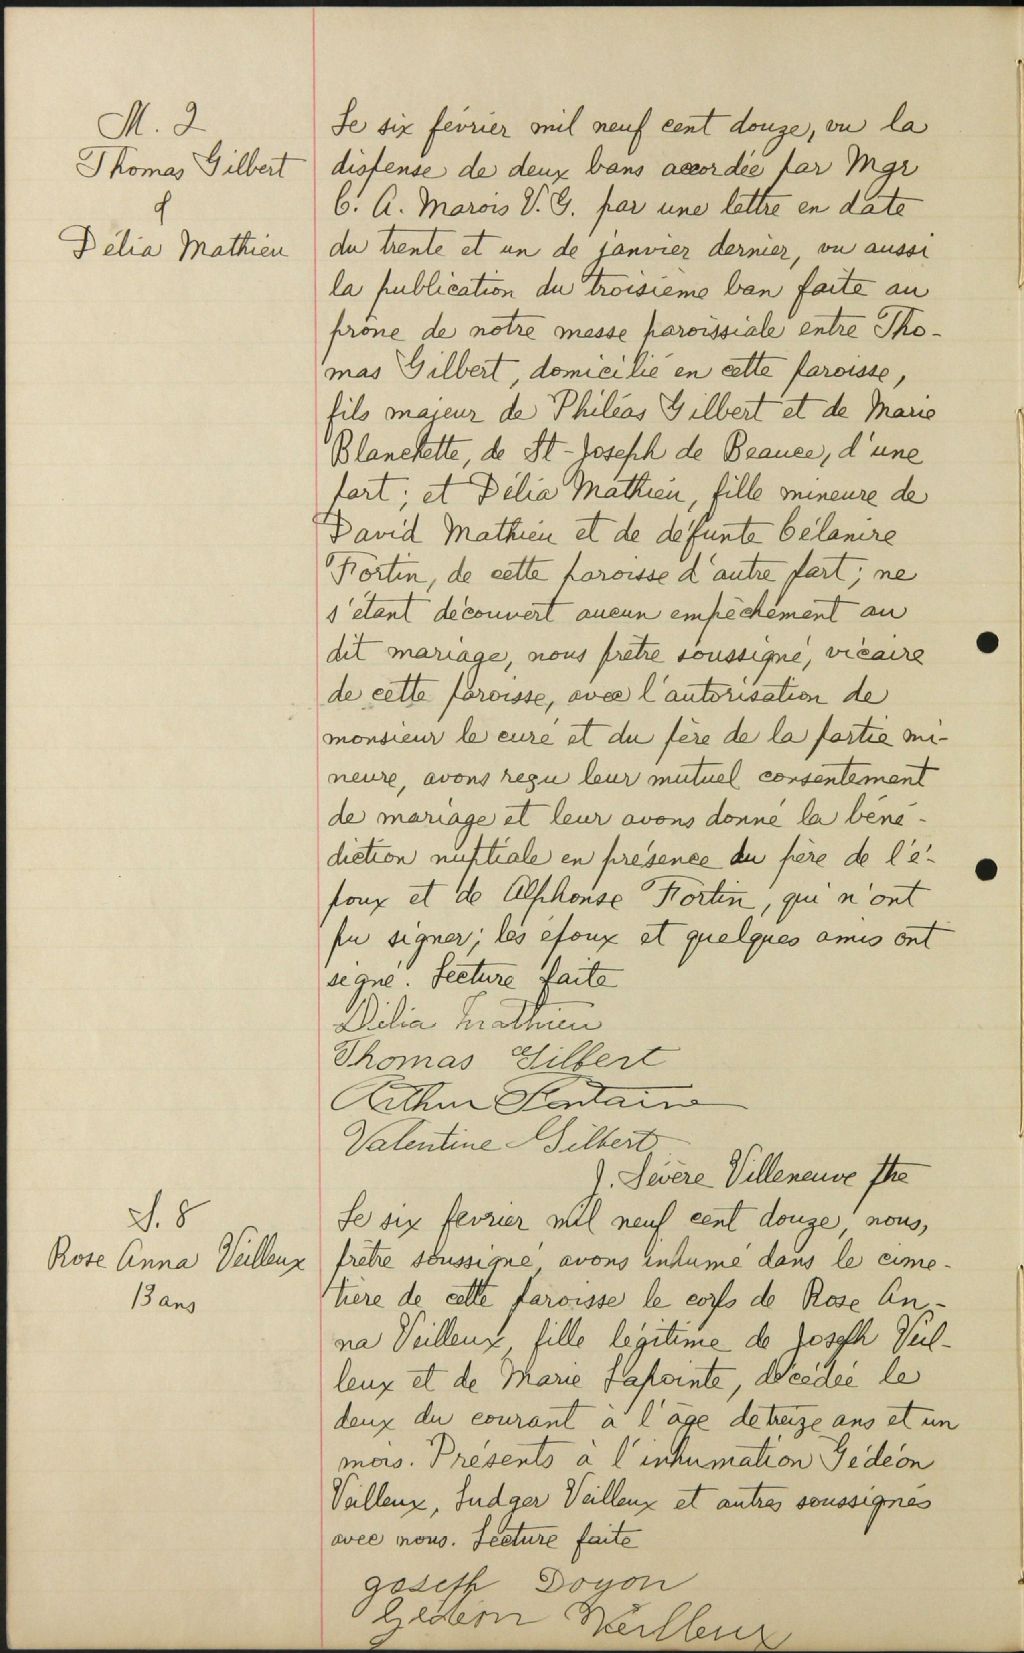 M. 2
Thomas Gilbert
&
Délia Mathieu
Le six février mil neuf cent douze, vu la
dispense de deux bans accordée par Mgr
C. A. Marois V. G. par une lettre en date
du trente et un de janvier dernier, vu aussi
la publication du troisième ban faite au
prône de notre messe paroissiale entre Tho-
mas Gilbert, domicilié en cette paroisse,
fils majeur de Philéas Gilbert et de Marie
Blanchette, de St-Joseph de Beauce, d'une
part; et Délia Mathieu, fille mineure de
David Mathieu et de défunte Célanire
Fortin, de cette paroisse d'autre part; ne
s'étant découvert aucun empêchement au
dit mariage, nous prêtre soussigné, vicaire
de cette paroisse, avec l'autorisation de
monsieur le curé et du père de la partie mi-
neure, avons reçu leur mutuel consentement
de mariage et leur avons donné la béné-
diction nuptiale en présence du père de l'é-
poux et de Alphonse Fortin, qui n'ont
pu signer; les époux et quelques amis ont
signé. Lecture faite
Délia Mathieu
Thomas Gilbert
Arthur Fontaine
Valentine Gilbert
J. Sévère Villeneuve ptre
S. 8
Rose Anna Veilleux
13 ans
Le six février mil neuf cent douze, nous,
prêtre soussigné, avons inhumé dans le cime-
tière de cette paroisse le corps de Rose An-
na Veilleux, fille légitime de Joseph Veil-
leux et de Marie Lapointe, décédée le
deux du courant à l'âge de treize ans et un
mois. Présents à l'inhumation Gédéon
Veilleux, Ludger Veilleux et autres soussignés
avec nous. Lecture faite
Joseph Doyon
Gédéon Veilleux